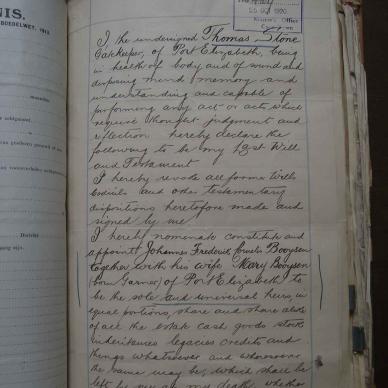 NIS.
BOEDELWET, 1913.
25 OCT 1920
Master's Office
I, the undersigned Thomas Stone
Gatekeeper, of Port Elizabeth, being
in health of body, and of mind and
disposing mind memory and
understanding and capable of
performing any act or acts which
require thought judgment and
reflection hereby declare the
following to be my Last Will
and Testament
I hereby revoke all former Wills
Codicils and other testamentary
dispositions heretofore made and
signed by me
I hereby nominate constitute and
appoint Johannes Frederick Booysen
together with his wife Mary Booysen
born Garner, of Port Elizabeth, to
be the sole and universal heirs, in
equal portions, share and share alike
of all the estate cash goods stocks
inheritances legacies credits and
things whatsoever and wheresoever
the same may be, which shall be
left by me at my death, whether